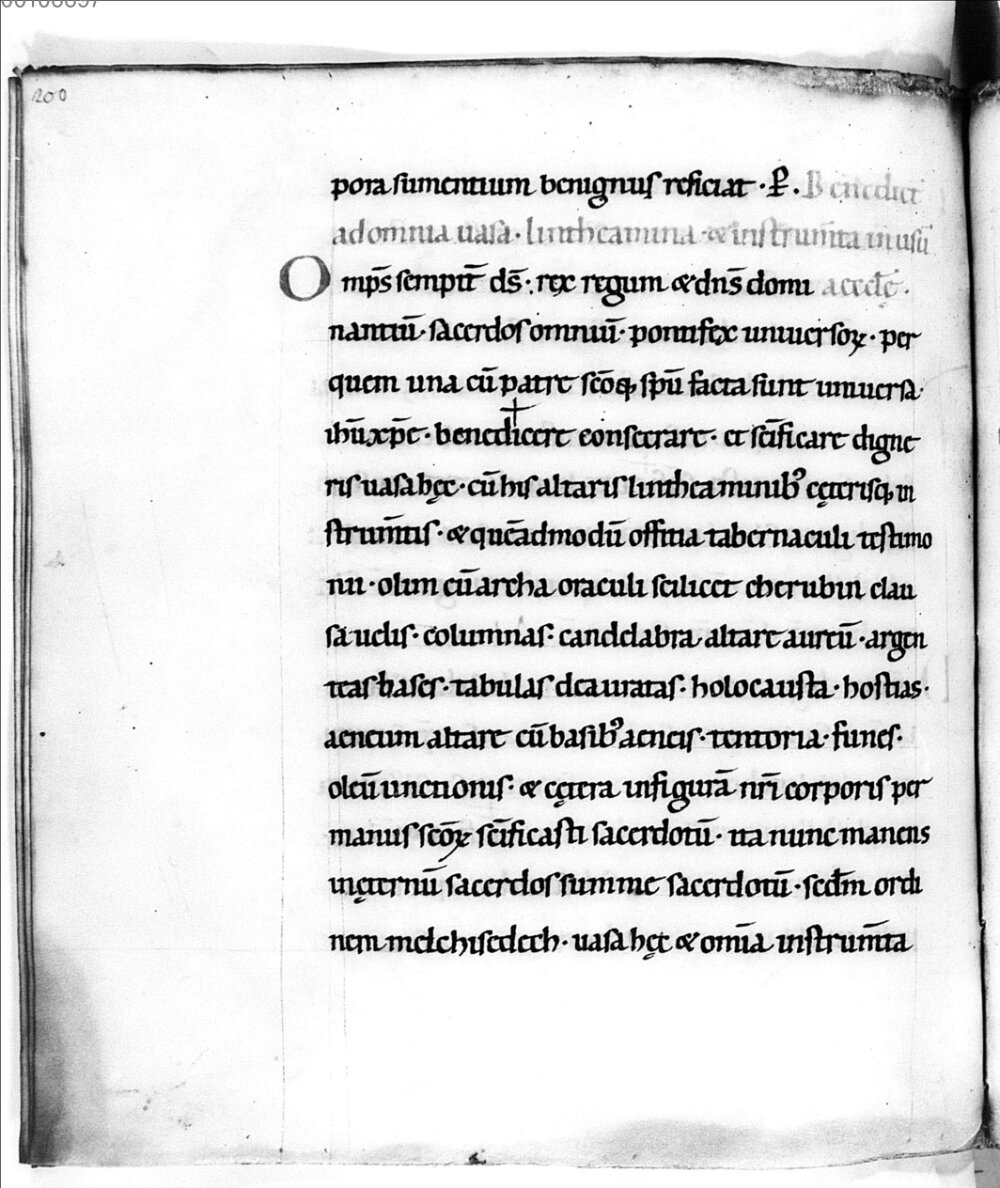 200
pora sumentium benignus reficiat · P̲ . Benedict
ad omnia uasa · lintheamina · & instrum̄ta in usū
Omp̄s sempit̄ ds̄ · rex regum & dn̄s domi aecclę̄ .
nantiū · sacerdos omniū · pontifex uniuersoꝝ · per
quem una cū patre sc̄oqꝫ sp̄u facta sunt uniuersa ·
ihū xp̄e · bened✝icere consecrare · et sc̄ificare digne
ris uasa hęc · cū his altaris lintheaminibꝰ cęterisqꝫ in
strum̄tis · & quēadmodū offitia tabernaculi testimo
nii · olim cū archa oraculi scilicet cherubin clau
sa uelis · columnas · candelabra altare aureū · argen
teas bases · tabulas deauratas · holocausta · hostias ·
aeneum altare cū basibꝰ aeneis · tentoria · funes ·
oleū unctionis · & cętera in figurā nr̄i corporis per
manus sc̄oꝝ sc̄ificasti sacerdotū · ita nunc manens
in ęternū sacerdos summe sacerdotū · scd̄m ordi
nem melchisedech · uasa hęc & om̄ia instrum̄ta